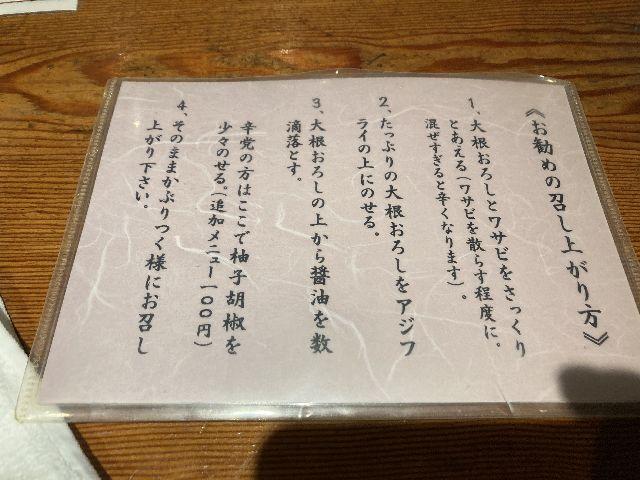 《お勧めの召し上がり方》
1、大根おろしとワサビをさっくり
とあえる(ワサビを散らす程度に。
混ぜすぎると辛くなります)。
2、たっぷりの大根おろしをアジフ
ライの上にのせる。
3、大根おろしの上から醤油を数
滴落とす。
辛党の方はここで柚子胡椒を
少々のせる。(追加メニュー一〇〇円)
4、そのままかぶりつく様にお召し
上がり下さい。